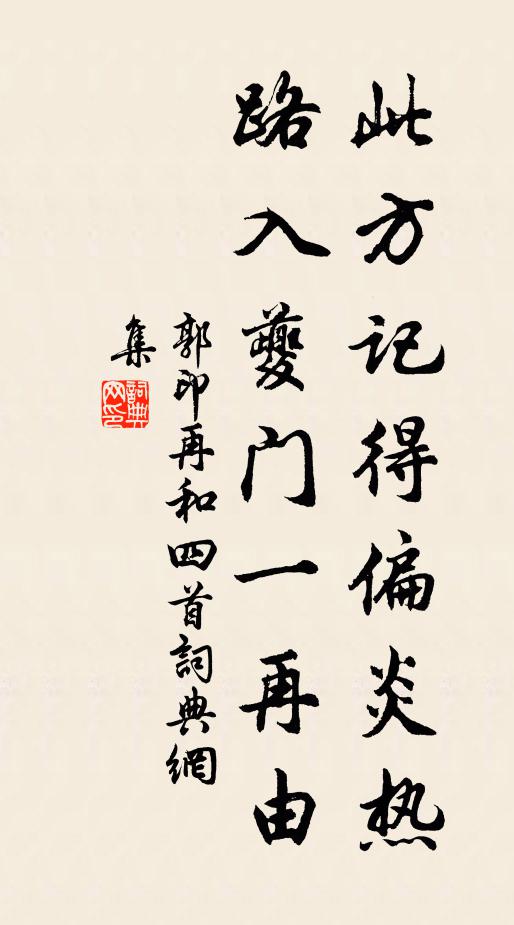 此方记得偏炎热
路入夔门一再由
郭印再和四首詞典網
集
詞典
网印